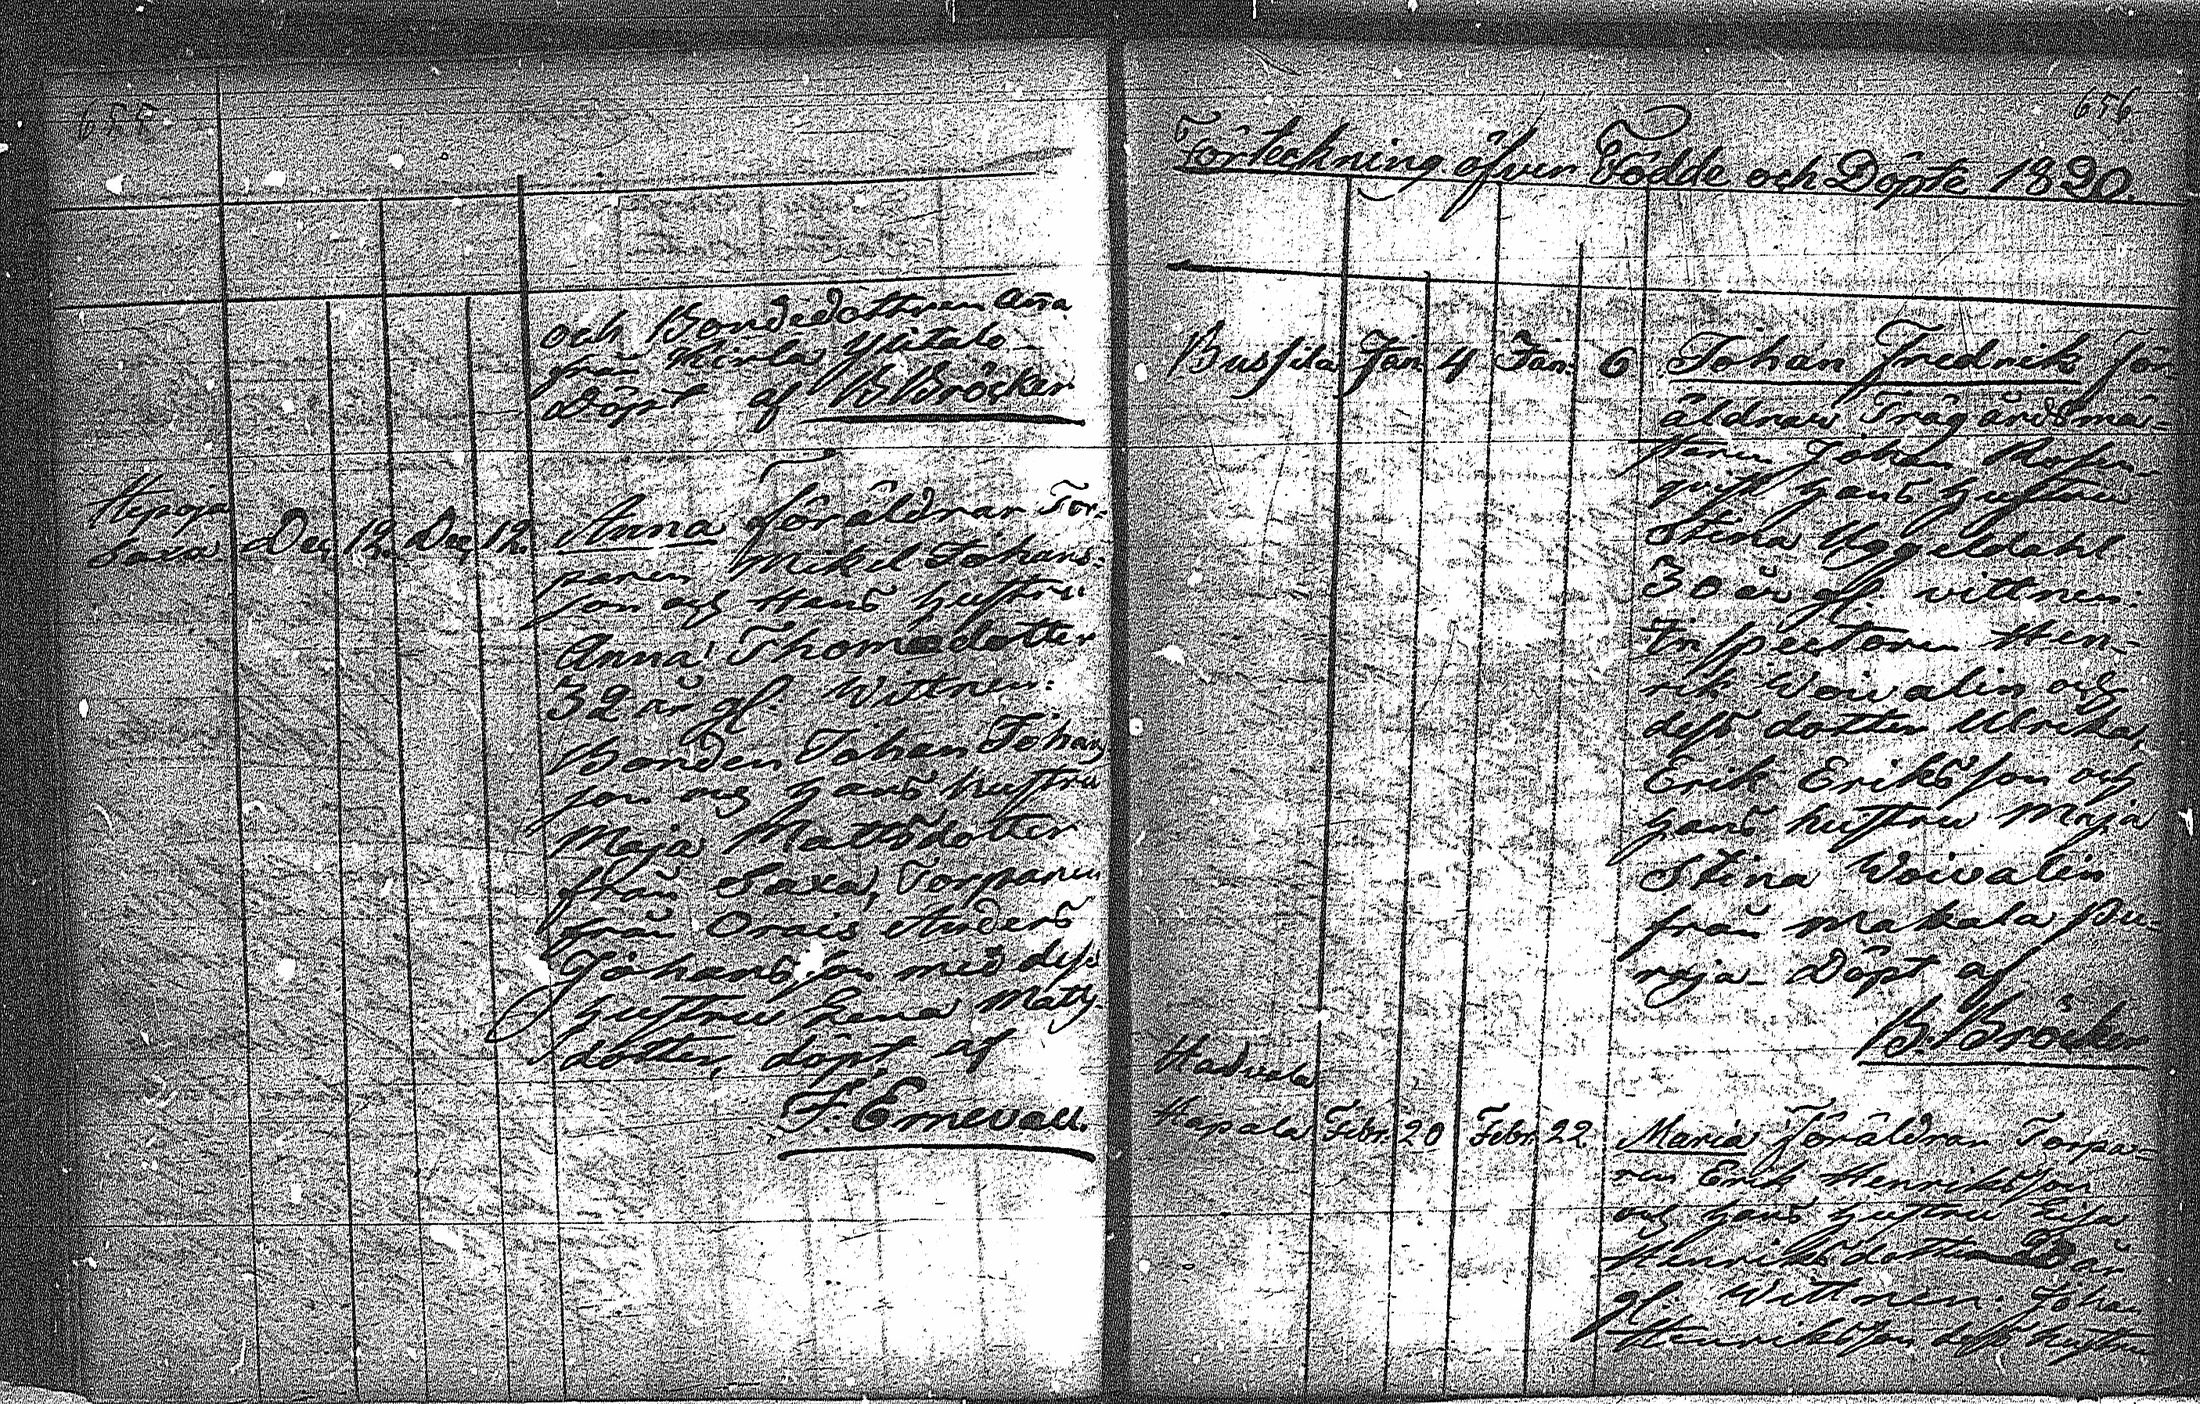 655
och Bondedottren Aña
från Kirla Ylitalo
Döpt af B Bröcker
Hepoja
Saxa Dec. 12. Dec. 12. Anna föräldrar Tor-
paren Mickel Johans-
son och Hans hustru
Anna Thomædotter
32 år gl. Wittnen:
Bonden Johan Johans
son och hans hustru
Maja Mattsdotter
från Saxa, Torparen
från Orais Anders
Johansson med dess
hustru Lena Matts
dotter, döpt af
F. Ernevall.
656
Förteckning öfver Födde och Döpte 1820.
Bussila Jan. 4 Jan. 6 Johan Fredrik för
äldrar Trägårdsmä-
staren Johan Rosen-
qvist hans hustru
Stina Uggeldahl
30 år gl. vittnen:
Inspectoren Hen-
rik Woivalin och
dess dotter Ulrika,
Erik Eriksson och
hans hustru Maja
Stina Woivalin
från Makala
Döpt af
B. Bröcker
Hadvala
Hapala Febr. 20 Febr. 22 Maria föräldrar Torpa-
ren Erik Henriksson
och hans hustru
Henriksdotter år
gl. Wittnen: Johan
Henriksson dess hustru